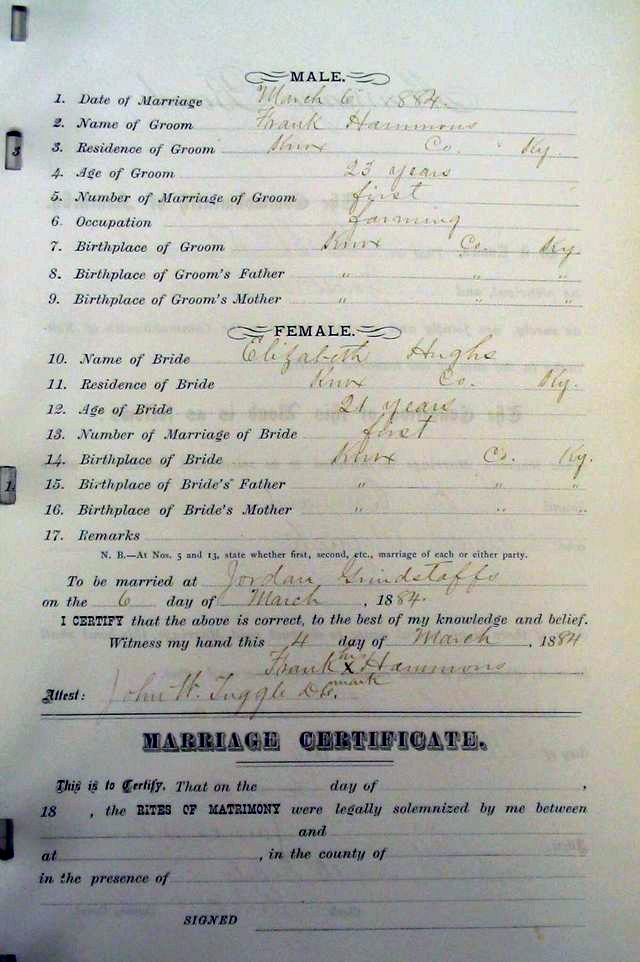 MALE.
1. Date of Marriage March 6 1884.
2. Name of Groom Frank Hammons
3. Residence of Groom Knox Co. Ky.
4. Age of Groom 23 years
5. Number of Marriage of Groom first
6. Occupation farming
7. Birthplace of Groom Knox Co. Ky
8. Birthplace of Groom's Father " " "
9. Birthplace of Groom's Mother " " "
FEMALE.
10. Name of Bride Elizabeth Hughs
11. Residence of Bride Knox Co. Ky.
12. Age of Bride 21 years
13. Number of Marriage of Bride first
14. Birthplace of Bride Knox Co. Ky.
15. Birthplace of Bride's Father " " "
16. Birthplace of Bride's Mother " " "
17. Remarks
N. B.—At Nos. 5 and 13, state whether first, second, etc., marriage of each or either party.
To be married at Jordan Grindstaffs
on the 6 day of March, 1884.
I CERTIFY that the above is correct, to the best of my knowledge and belief.
Witness my hand this 4 day of March, 1884
Frank his x mark Hammons
Attest: John W. Tuggle D.C.
MARRIAGE CERTIFICATE.
This is to Certify, That on the day of ,
18 , the RITES OF MATRIMONY were legally solemnized by me between
and
at , in the county of
in the presence of
SIGNED